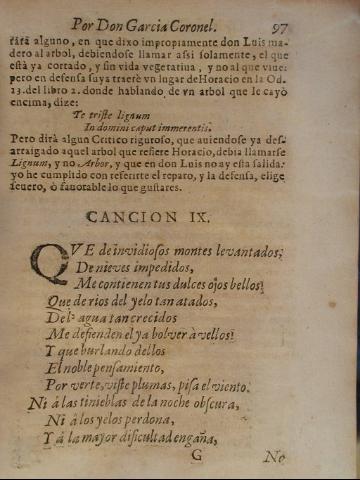 Por Don Garcia Coronel. 97
rirà alguno, en que dixo impropiamente don Luis ma-
dero al arbol, debiendose llamar assi solamente, el que
està ya cortado, y sin vida vegetatiua, y no al que viue:
pero en defensa suya traerè vn lugar de Horacio en la Od.
13. del libro 2. donde hablando de vn arbol que le cayò
encima, dize:
Te triste lignum
In domini caput immerentis.
Pero dirà algun Critico riguroso, que auiendose ya des-
arraigado aquel arbol que refiere Horacio, debia llamarse
Lignum, y no Arbor, y que en don Luis no ay esta salida:
yo he cumplido con referirte el reparo, y la defensa, elige
seuero, ò fauorable lo que gustares.
CANCION IX.
QVE de invidiosos montes levantados,
De nieves impedidos,
Me contienen tus dulces ojos bellos!
Que de rios del yelo tan atados,
Del agua tan crecidos
Me defienden el ya bolver à vellos!
Y que burlando dellos
El noble pensamiento,
Por verte, viste plumas, pisa el viento.
Ni à las tinieblas de la noche obscura,
Ni à los yelos perdona,
Y à la mayor dificultad engaña,
G No